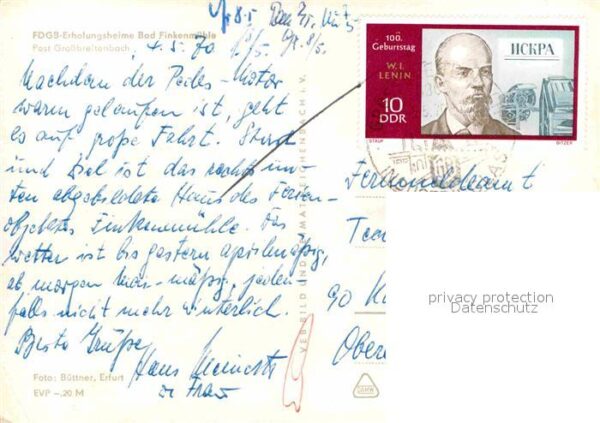 FDGB-Erholungsheime Bad Finkenmühle
Post Großbreitenbach
4.5.70
Nachdem der Pedes-Motor
warm gelaufen ist, geht
es auf große Fahrt. Start
und Ziel ist das rechts un-
ten abgebildete Haus des Ferien-
objektes Finkenmühle. Das
Wetter ist bis gestern aprilmäßig,
ab morgen mai-mäßig, jeden-
falls nicht mehr winterlich.
Beste Grüße
Hans
u. Frau
Foto: Büttner, Erfurt
EVP -,20 M
VEB BILD UND HEIMAT REICHENBACH i. V.
100.
Geburtstag
W. I.
LENIN
10
DDR
ИСКРА
STAUF
BITZER
Fernmeldeamt
90 K
Ober
privacy protection
Datenschutz